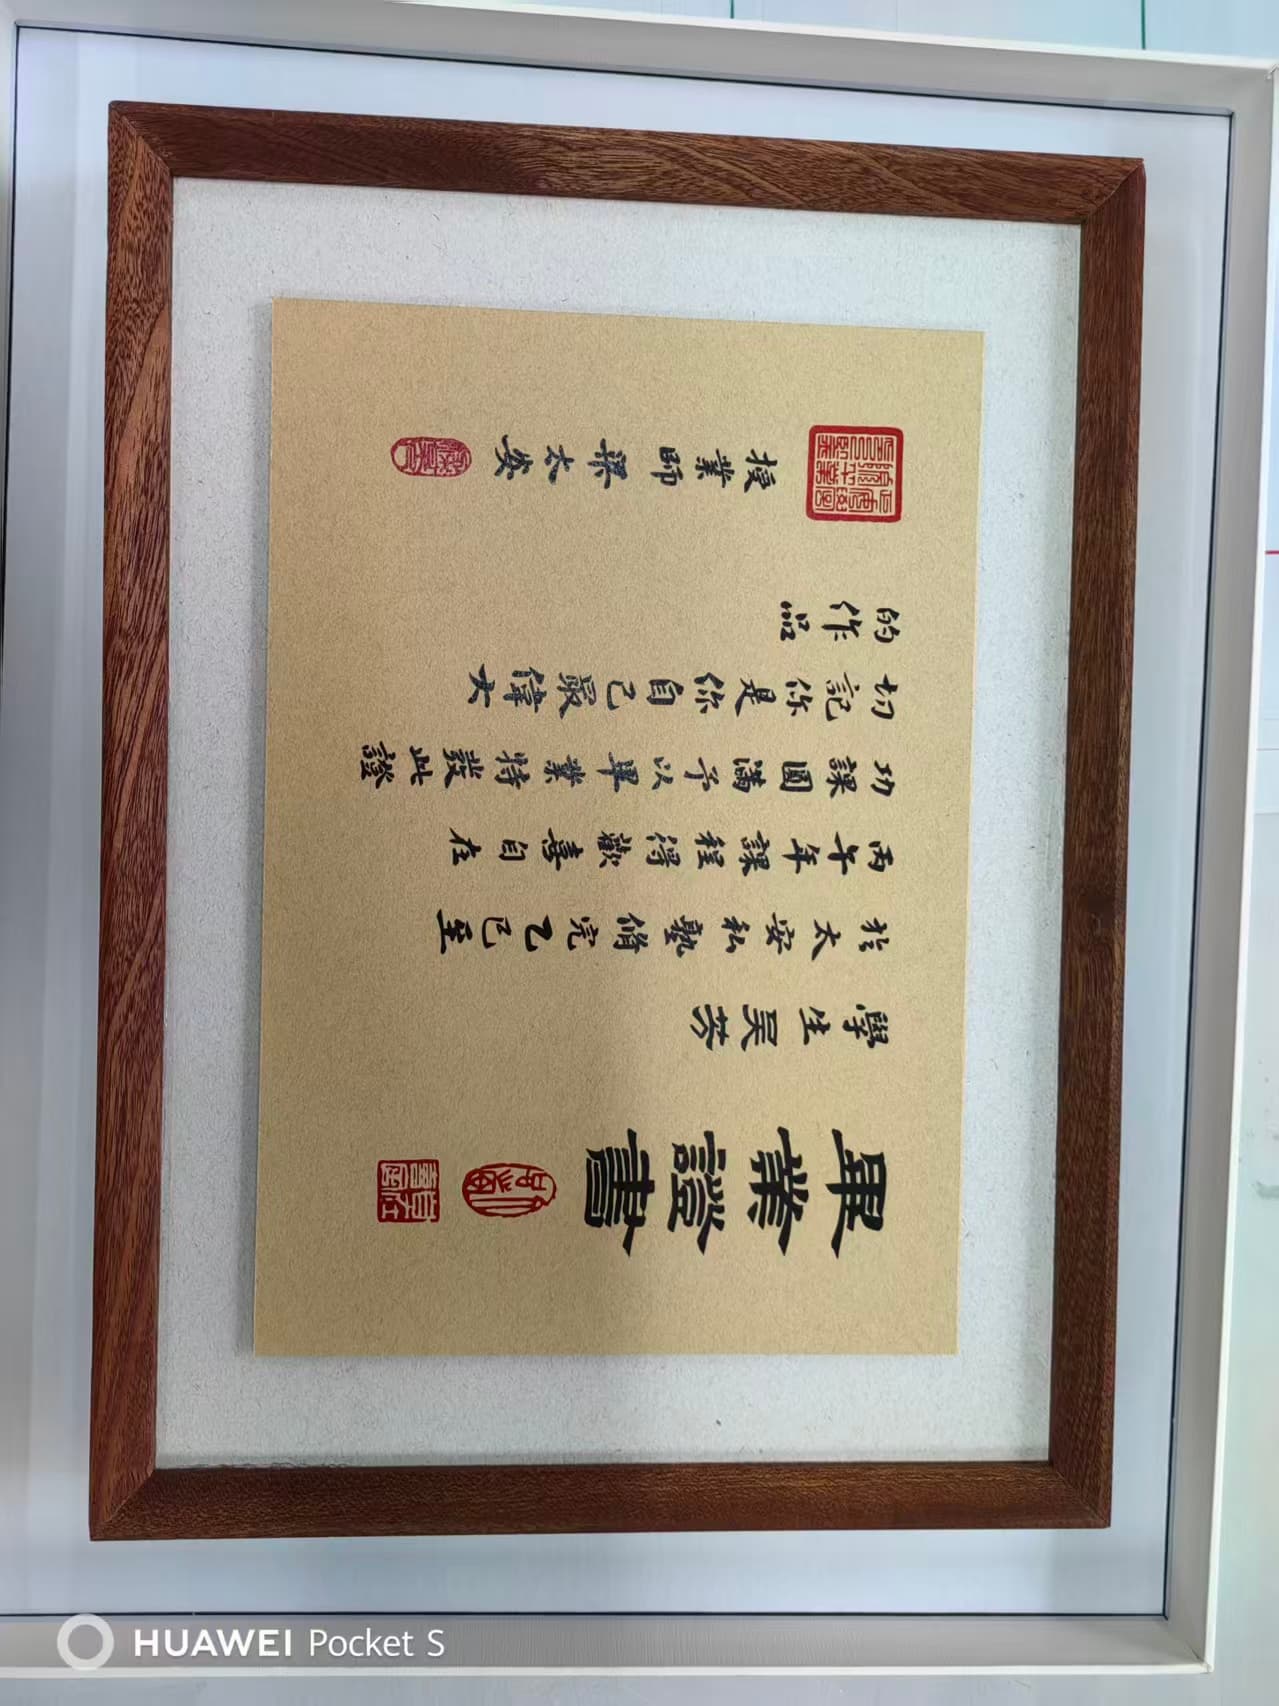 畢業證書
學生吴芳
於太安私塾脩完乙巳至
丙午年課程得歡喜自在
功課圓滿予以畢業特發此證
切記你是你自己最偉大
的作品
授業師梁太安
HUAWEI Pocket S